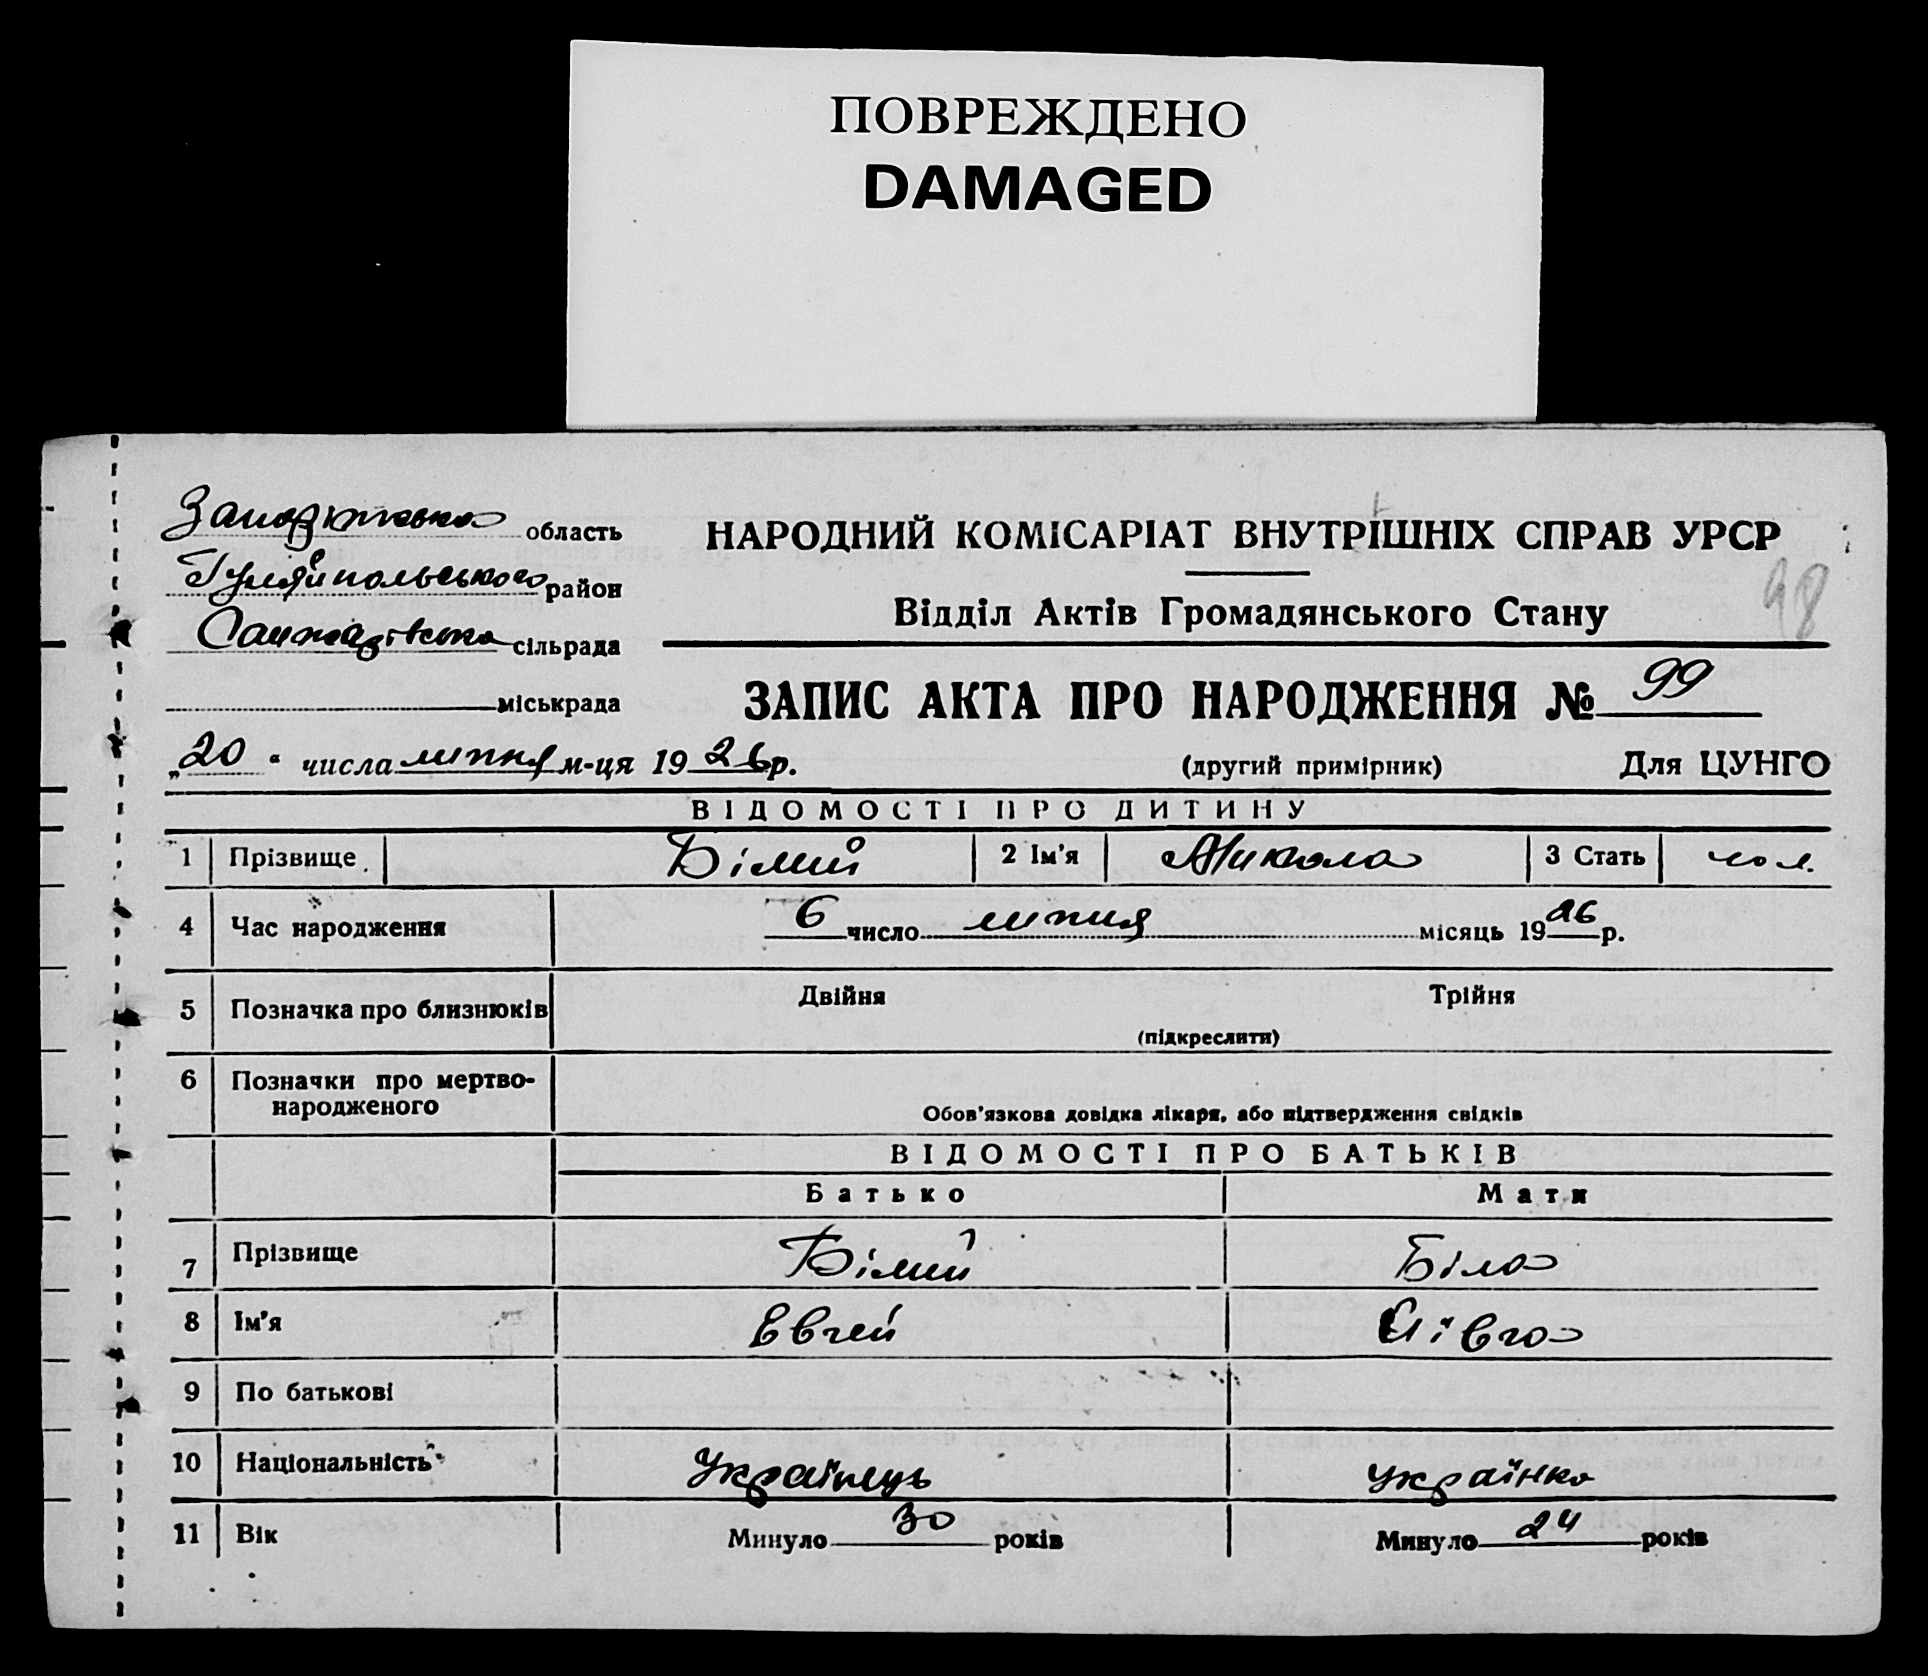 ПОВРЕЖДЕНО
DAMAGED
Запорізька область
Гуляйпольського район
сільрада
міськрада
НАРОДНИЙ КОМІСАРІАТ ВНУТРІШНІХ СПРАВ УРСР
98
Відділ Актів Громадянського Стану
ЗАПИС АКТА ПРО НАРОДЖЕННЯ № 99
„20“ числа липня м-ця 1926 р.
(другий примірник) Для ЦУНГО
ВІДОМОСТІ ПРО ДИТИНУ
1 Прізвище Білий 2 Ім'я Микола 3 Стать чол.
4 Час народження 6 число липня місяць 1926 р.
5 Позначка про близнюків Двійня Трійня
(підкреслити)
6 Позначки про мертво-
народженого
Обов'язкова довідка лікаря, або підтвердження свідків
ВІДОМОСТІ ПРО БАТЬКІВ
Батько Мати
7 Прізвище Білий Біла
8 Ім'я Євген
9 По батькові
10 Національність Українець українка
11 Вік Минуло 30 років Минуло 24 років